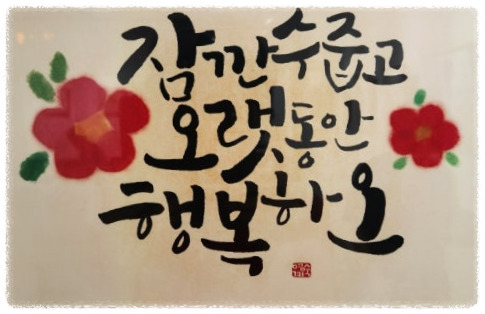 잠깐 수줍고
오랫동안
행복하오